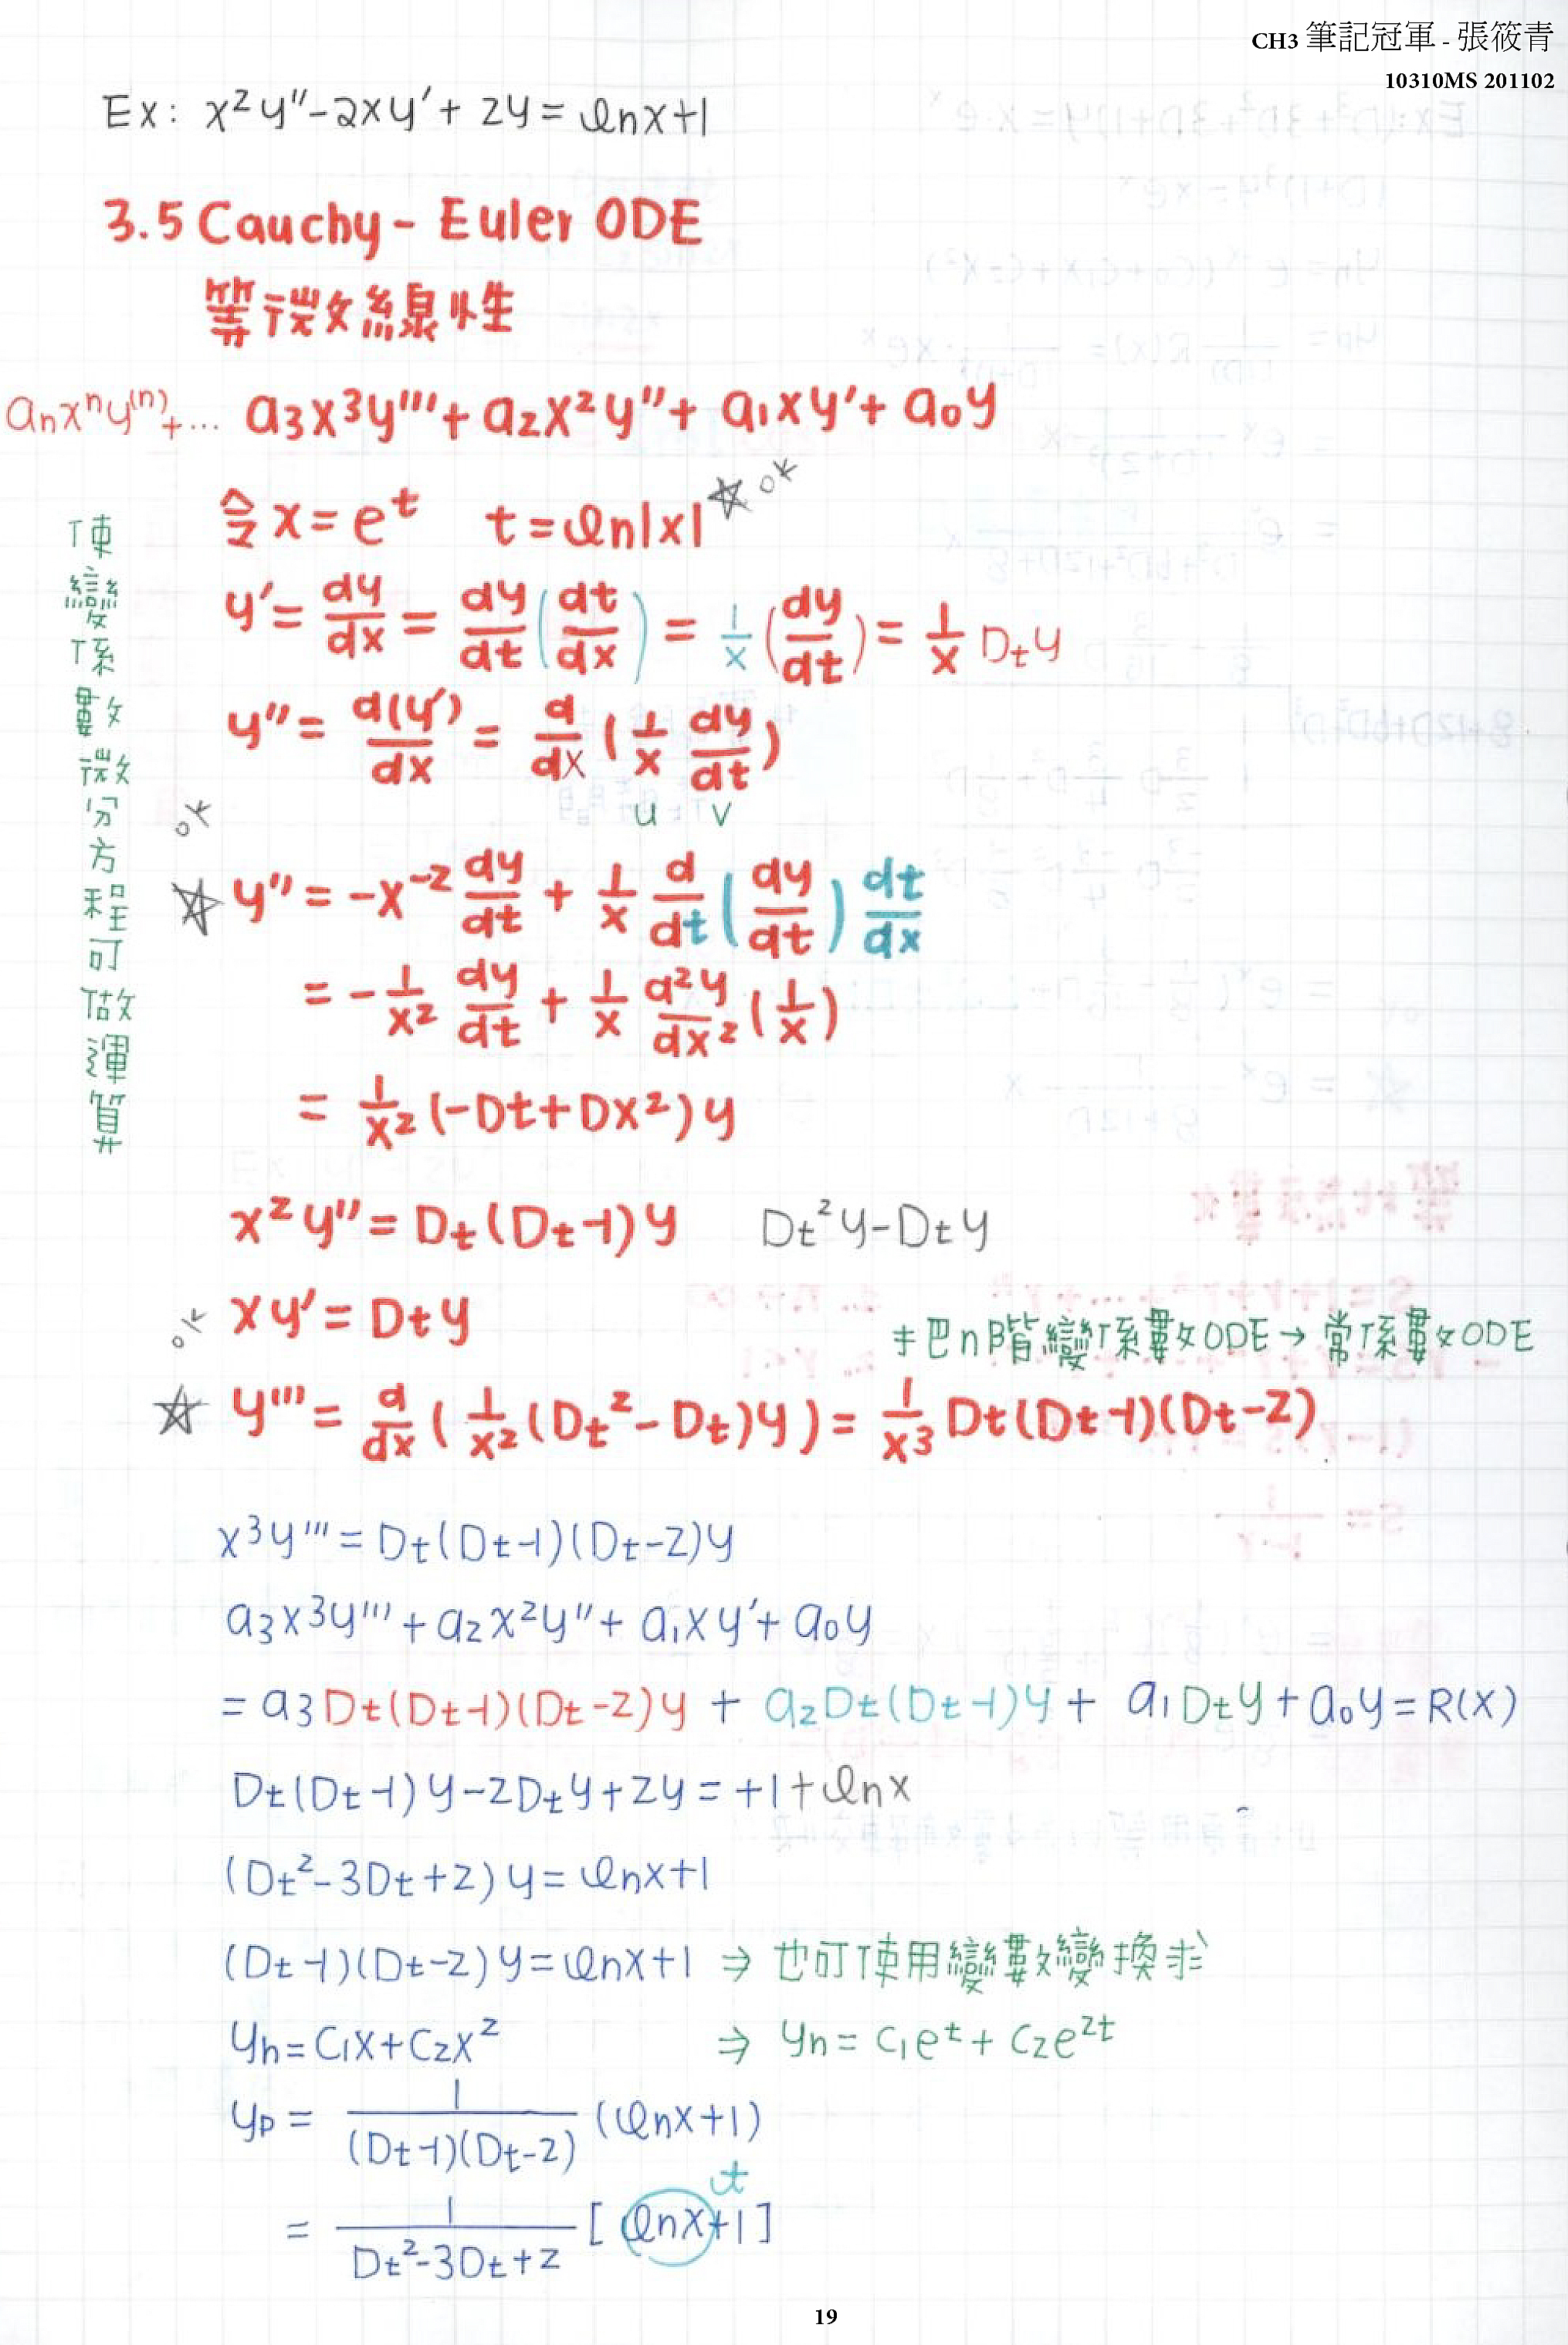 CH3 筆記冠軍 - 張筱青
10310MS 201102
Ex: x²y''-2xy'+2y=lnx+1
3.5 Cauchy-Euler ODE
等微線性
aₙxⁿy⁽ⁿ⁾+... a₃x³y'''+a₂x²y''+a₁xy'+a₀y
令 x=eᵗ t=ln|x| ☆ ok
使變係數微分方程可做運算
y'=dy/dx=dy/dt(dt/dx)=1/x(dy/dt)=1/x Dty
y''=d(y')/dx=d/dx(1/x dy/dt)
u v
ok
☆ y''=-x⁻² dy/dt+1/x d/dt(dy/dt)dt/dx
=-1/x² dy/dt+1/x d²y/dx²(1/x)
=1/x²(-Dt+Dx²)y
x²y''=Dt(Dt-1)y Dt²y-Dty
ok xy'=Dty
把n階變係數ODE→常係數ODE
☆ y'''=d/dx(1/x²(Dt²-Dt)y)=1/x³ Dt(Dt-1)(Dt-2)
x³y'''=Dt(Dt-1)(Dt-2)y
a₃x³y'''+a₂x²y''+a₁xy'+a₀y
=a₃Dt(Dt-1)(Dt-2)y+a₂Dt(Dt-1)y+a₁Dty+a₀y=R(x)
Dt(Dt-1)y-2Dty+2y=+1+lnx
(Dt²-3Dt+2)y=lnx+1
(Dt-1)(Dt-2)y=lnx+1 ⇒ 也可使用變數變換求
yh=C₁x+C₂x² ⇒ yh=C₁eᵗ+C₂e²ᵗ
yp=1/((Dt-1)(Dt-2)) (lnx+1)
t
=1/(Dt²-3Dt+2) [lnx+1]
19